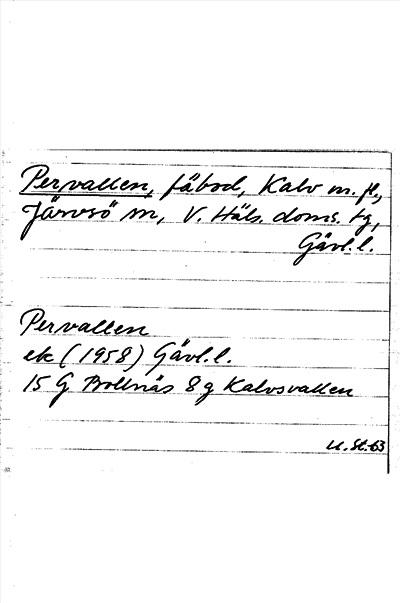 Pervallen, fäbod, Kalv m. fl.,
Järvsö sn, V. Häls. doms. tg,
Gävl. l.
Pervallen
ek (1958) Gävl. l.
15 G Bollnäs 8 g Kalvsvallen
U. St. 63